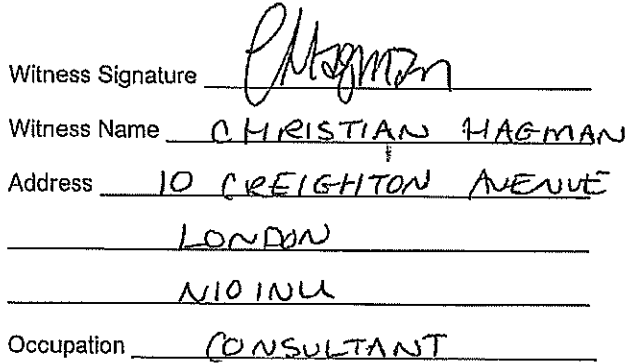 Witness Signature CHagman
Witness Name CHRISTIAN HAGMAN
Address 10 CREIGHTON AVENUE
LONDON
N10 1NU
Occupation CONSULTANT